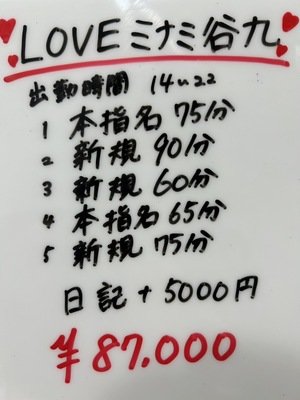 LOVEミナミ谷九
出勤時間 14〜22
1 本指名 75分
2 新規 90分
3 新規 60分
4 本指名 65分
5 新規 75分
日記 + 5000円
¥87.000